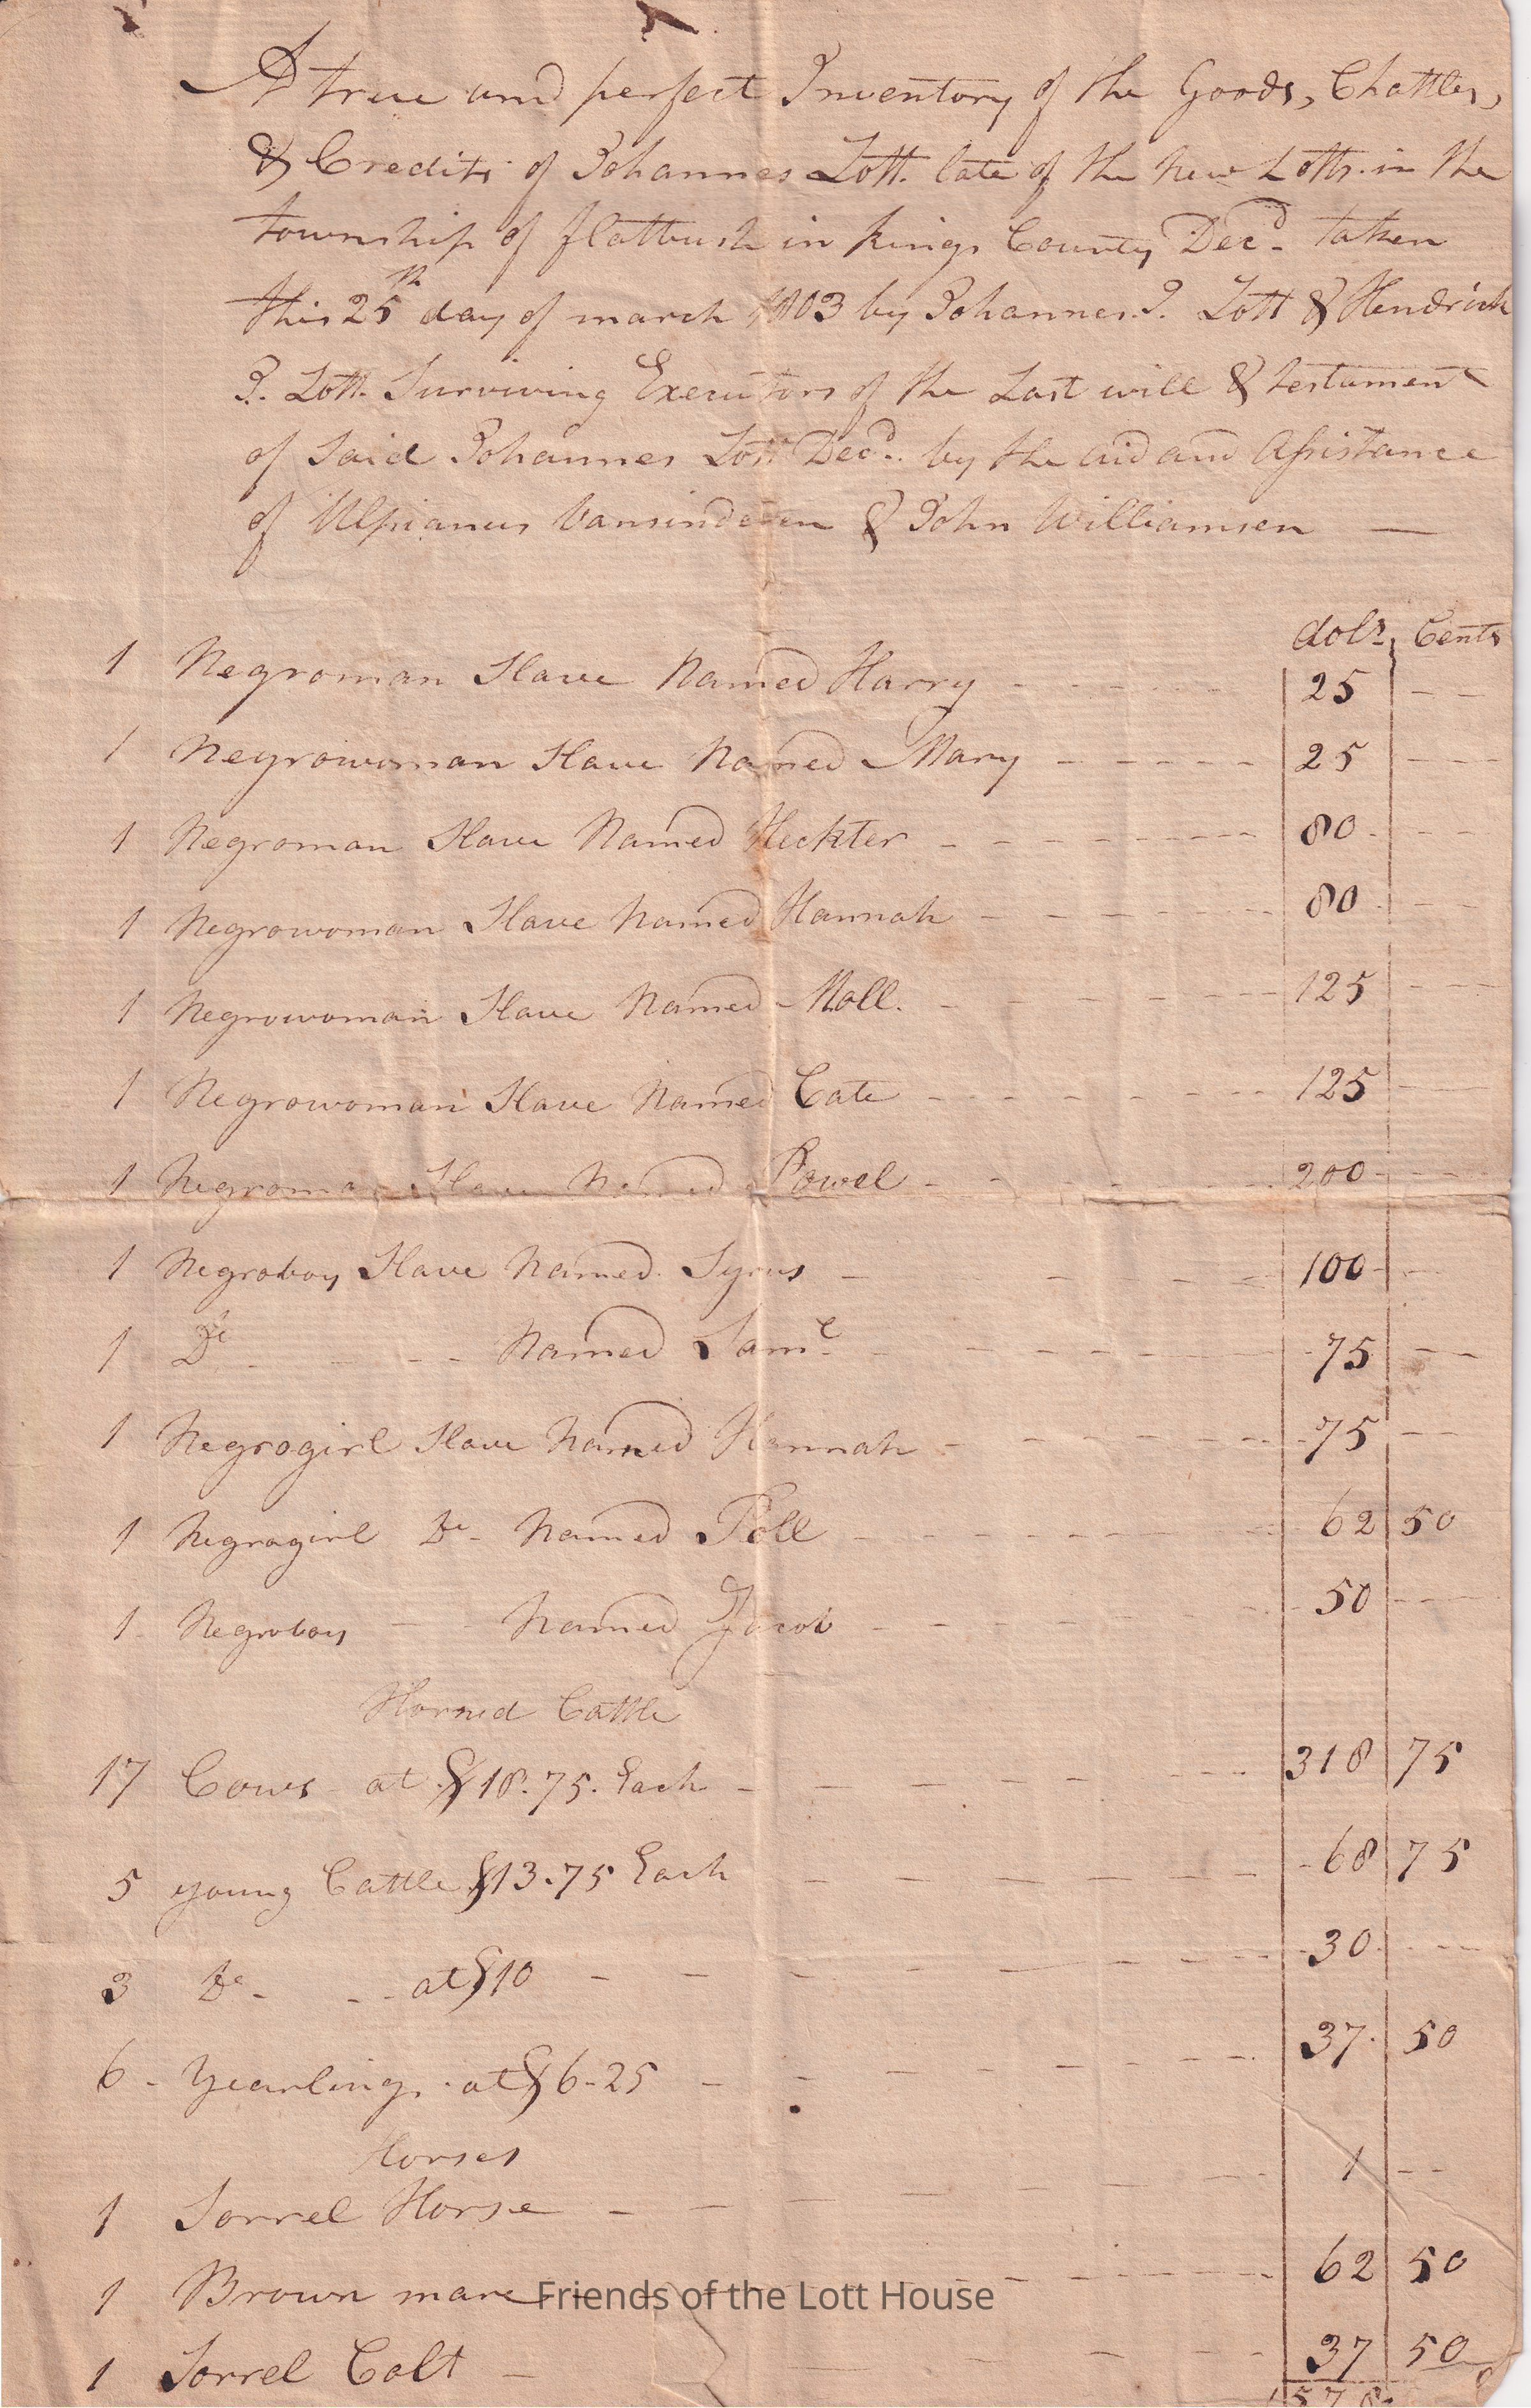 A true and perfect Inventory of the Goods, Chattles,
& Credits of Johannes Lott. late of the New Lotts. in the
township of flatbush in kings County Decd. taken
this 25th day of march 1803 by Johannes. J. Lott & Hendrick
J. Lott. Surviving Executors of the Last will & testament
of Said Johannes Lott Decd. by the aid and Assistance
of Ulpianus Vansinderen & John Williamsen —
dols. Cents
1 Negroman Slave Named Harry 25
1 Negrowoman Slave Named Mary 25
1 Negroman Slave Named Heckter 80
1 Negrowoman Slave Named Hannah 80
1 Negrowoman Slave Named Moll. 125
1 Negrowoman Slave Named Cate 125
1 Negroman Slave Named Powel 200
1 Negroboy Slave Named Syrus 100
1 Do Named Saml 75
1 Negrogirl Slave Named Hannah 75
1 Negrogirl Do Named Poll 62 50
1 Negroboy Named Jacob 50
Horned Cattle
17 Cows at $18.75. Each 318 75
5 young Cattle $13.75 Each 68 75
3 Do at $10 30
6 Yearlings at $6-25 37 50
Horses
1 Sorrel Horse 1
1 Brown mare 62 50
1 Sorrel Colt 37 50
1578
Friends of the Lott House